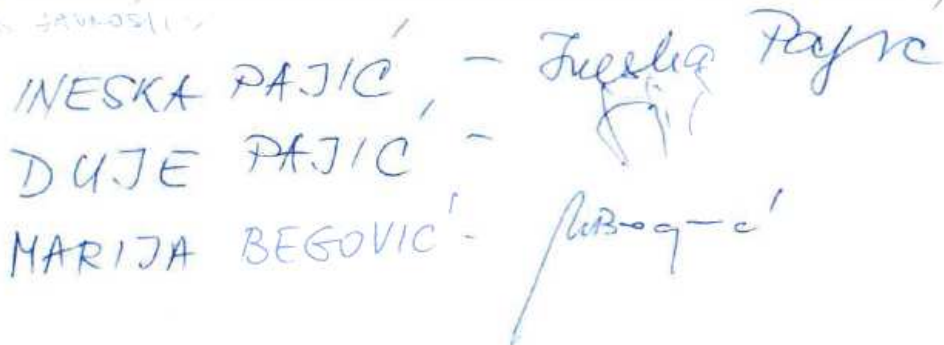 INESKA PAJIĆ - Ineska Pajić
DUJE PAJIĆ -
MARIJA BEGOVIĆ -